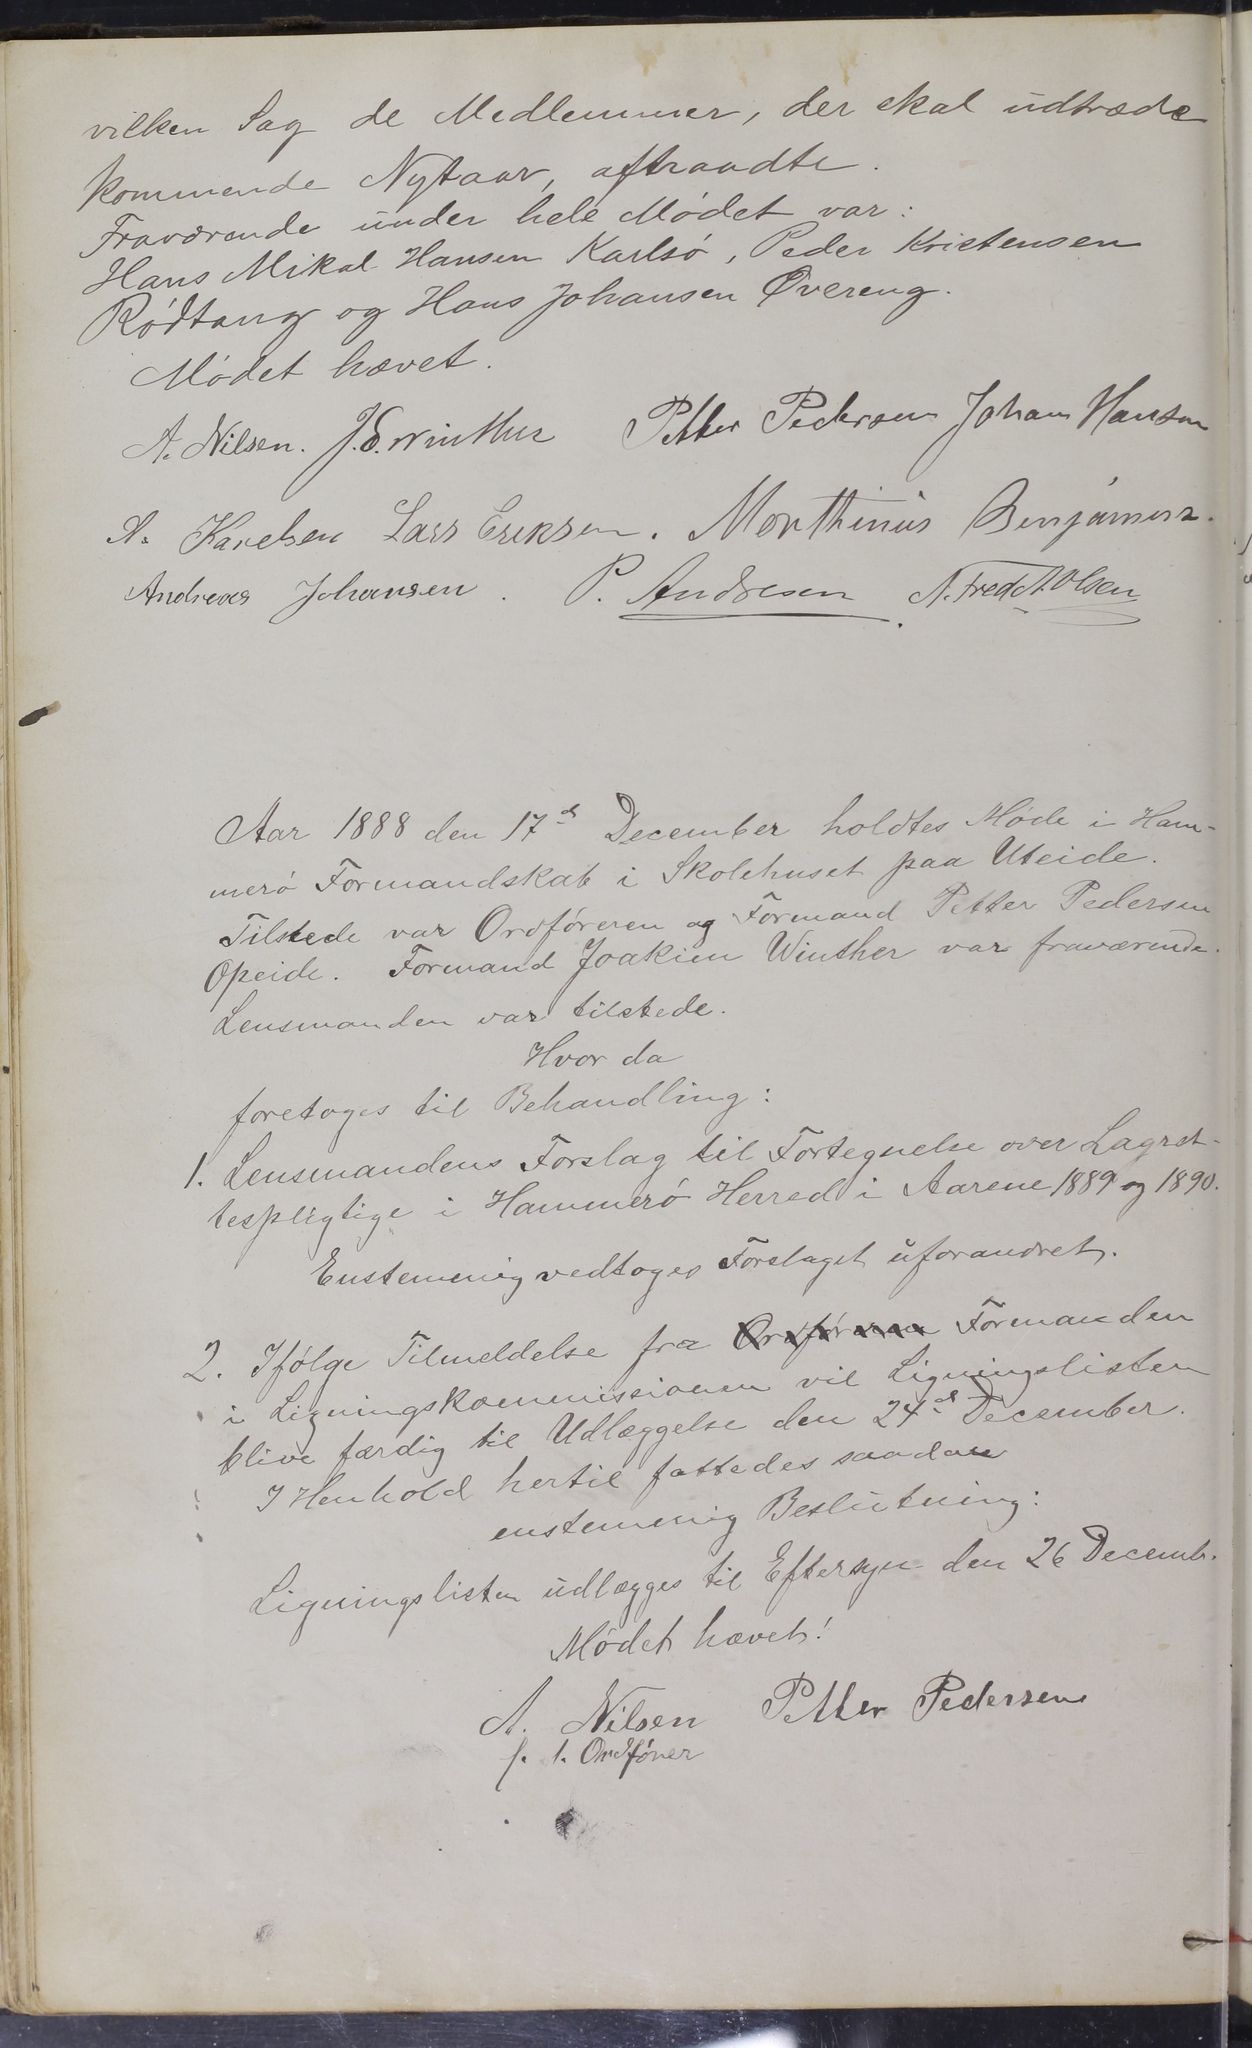 vilken Sag de Medlemmer, der skal udtræde
kommende Nytaar, aftraadte.
Fraværende under hele Mødet var:
Hans Mikal Hansen Karlsø, Peder Kristensen
Rødtang og Hans Johansen Øvereng.
Mødet hævet.
A. Nilsen. J. E. Winther Petter Pedersen Johan Hansen
A. Karelsen Lars Eriksen. Morthinus Benjamins.
Andreas Johansen. P. Andresen A. Fredr. Olsen
Aar 1888 den 17de December holdtes Møde i Ham-
merø Formandskab i Skolehuset paa Uteide.
Tilstede var Ordføreren og Formand Petter Pedersen
Opeide. Formand Joakim Winther var fraværende.
Lensmanden var tilstede.
Hvor da
foretoges til Behandling:
1. Lensmandens Forslag til Fortegnelse over Lagret-
tespligtige i Hammerø Herred i Aarene 1889 og 1890.
Enstemmig vedtoges Forslaget uforandret.
2. Ifølge Tilmeldelse fra Ordføreren Formanden
i Ligningskommissionen vil Ligningslisten
blive færdig til Udlæggelse den 24de December.
I Henhold hertil fattedes saadan
enstemmig Beslutning:
Ligningslisten udlægges til Eftersyn den 26 Decembr.
Mødet hævet!
A. Nilsen Petter Pedersen
f. t. Ordfører